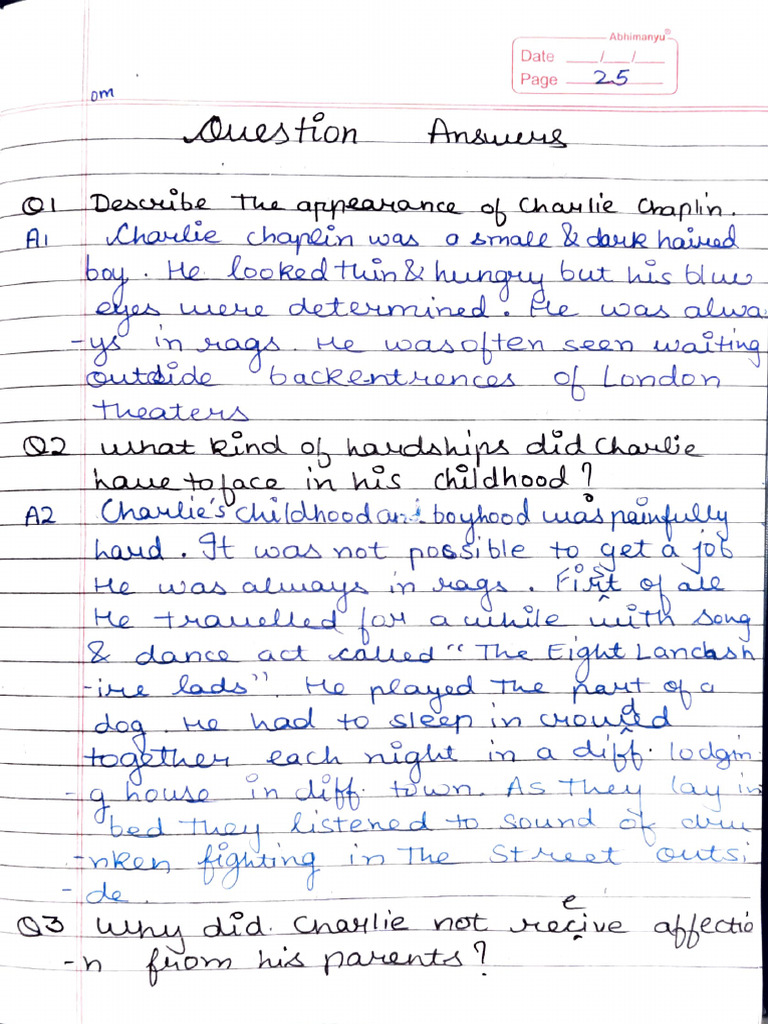 Abhimanyu
Date __/__/__
Page 25
om
Question Answers
Q1 Describe the appearance of Charlie Chaplin.
A1 Charlie chaplin was a small & dark haired
boy. He looked thin & hungry but his blue
eyes were determined. He was alwa
-ys in rags. He was often seen waiting
outside backentrences of London
theaters
Q2 What kind of hardships did Charlie
have to face in his childhood?
A2 Charlie's childhood and boyhood was painfully
hard. It was not possible to get a job
He was always in rags. First of all
He travelled for a while with song
& dance act called "The Eight Lancash
-ire lads". He played the part of a
dog. He had to sleep in crowded
together each night in a diff. lodgin
-g house in diff. town. As they lay in
bed they listened to sound of dru
-nken fighting in the street outsi
-de.
Q3 Why did Charlie not receive affectio
-n from his parents?